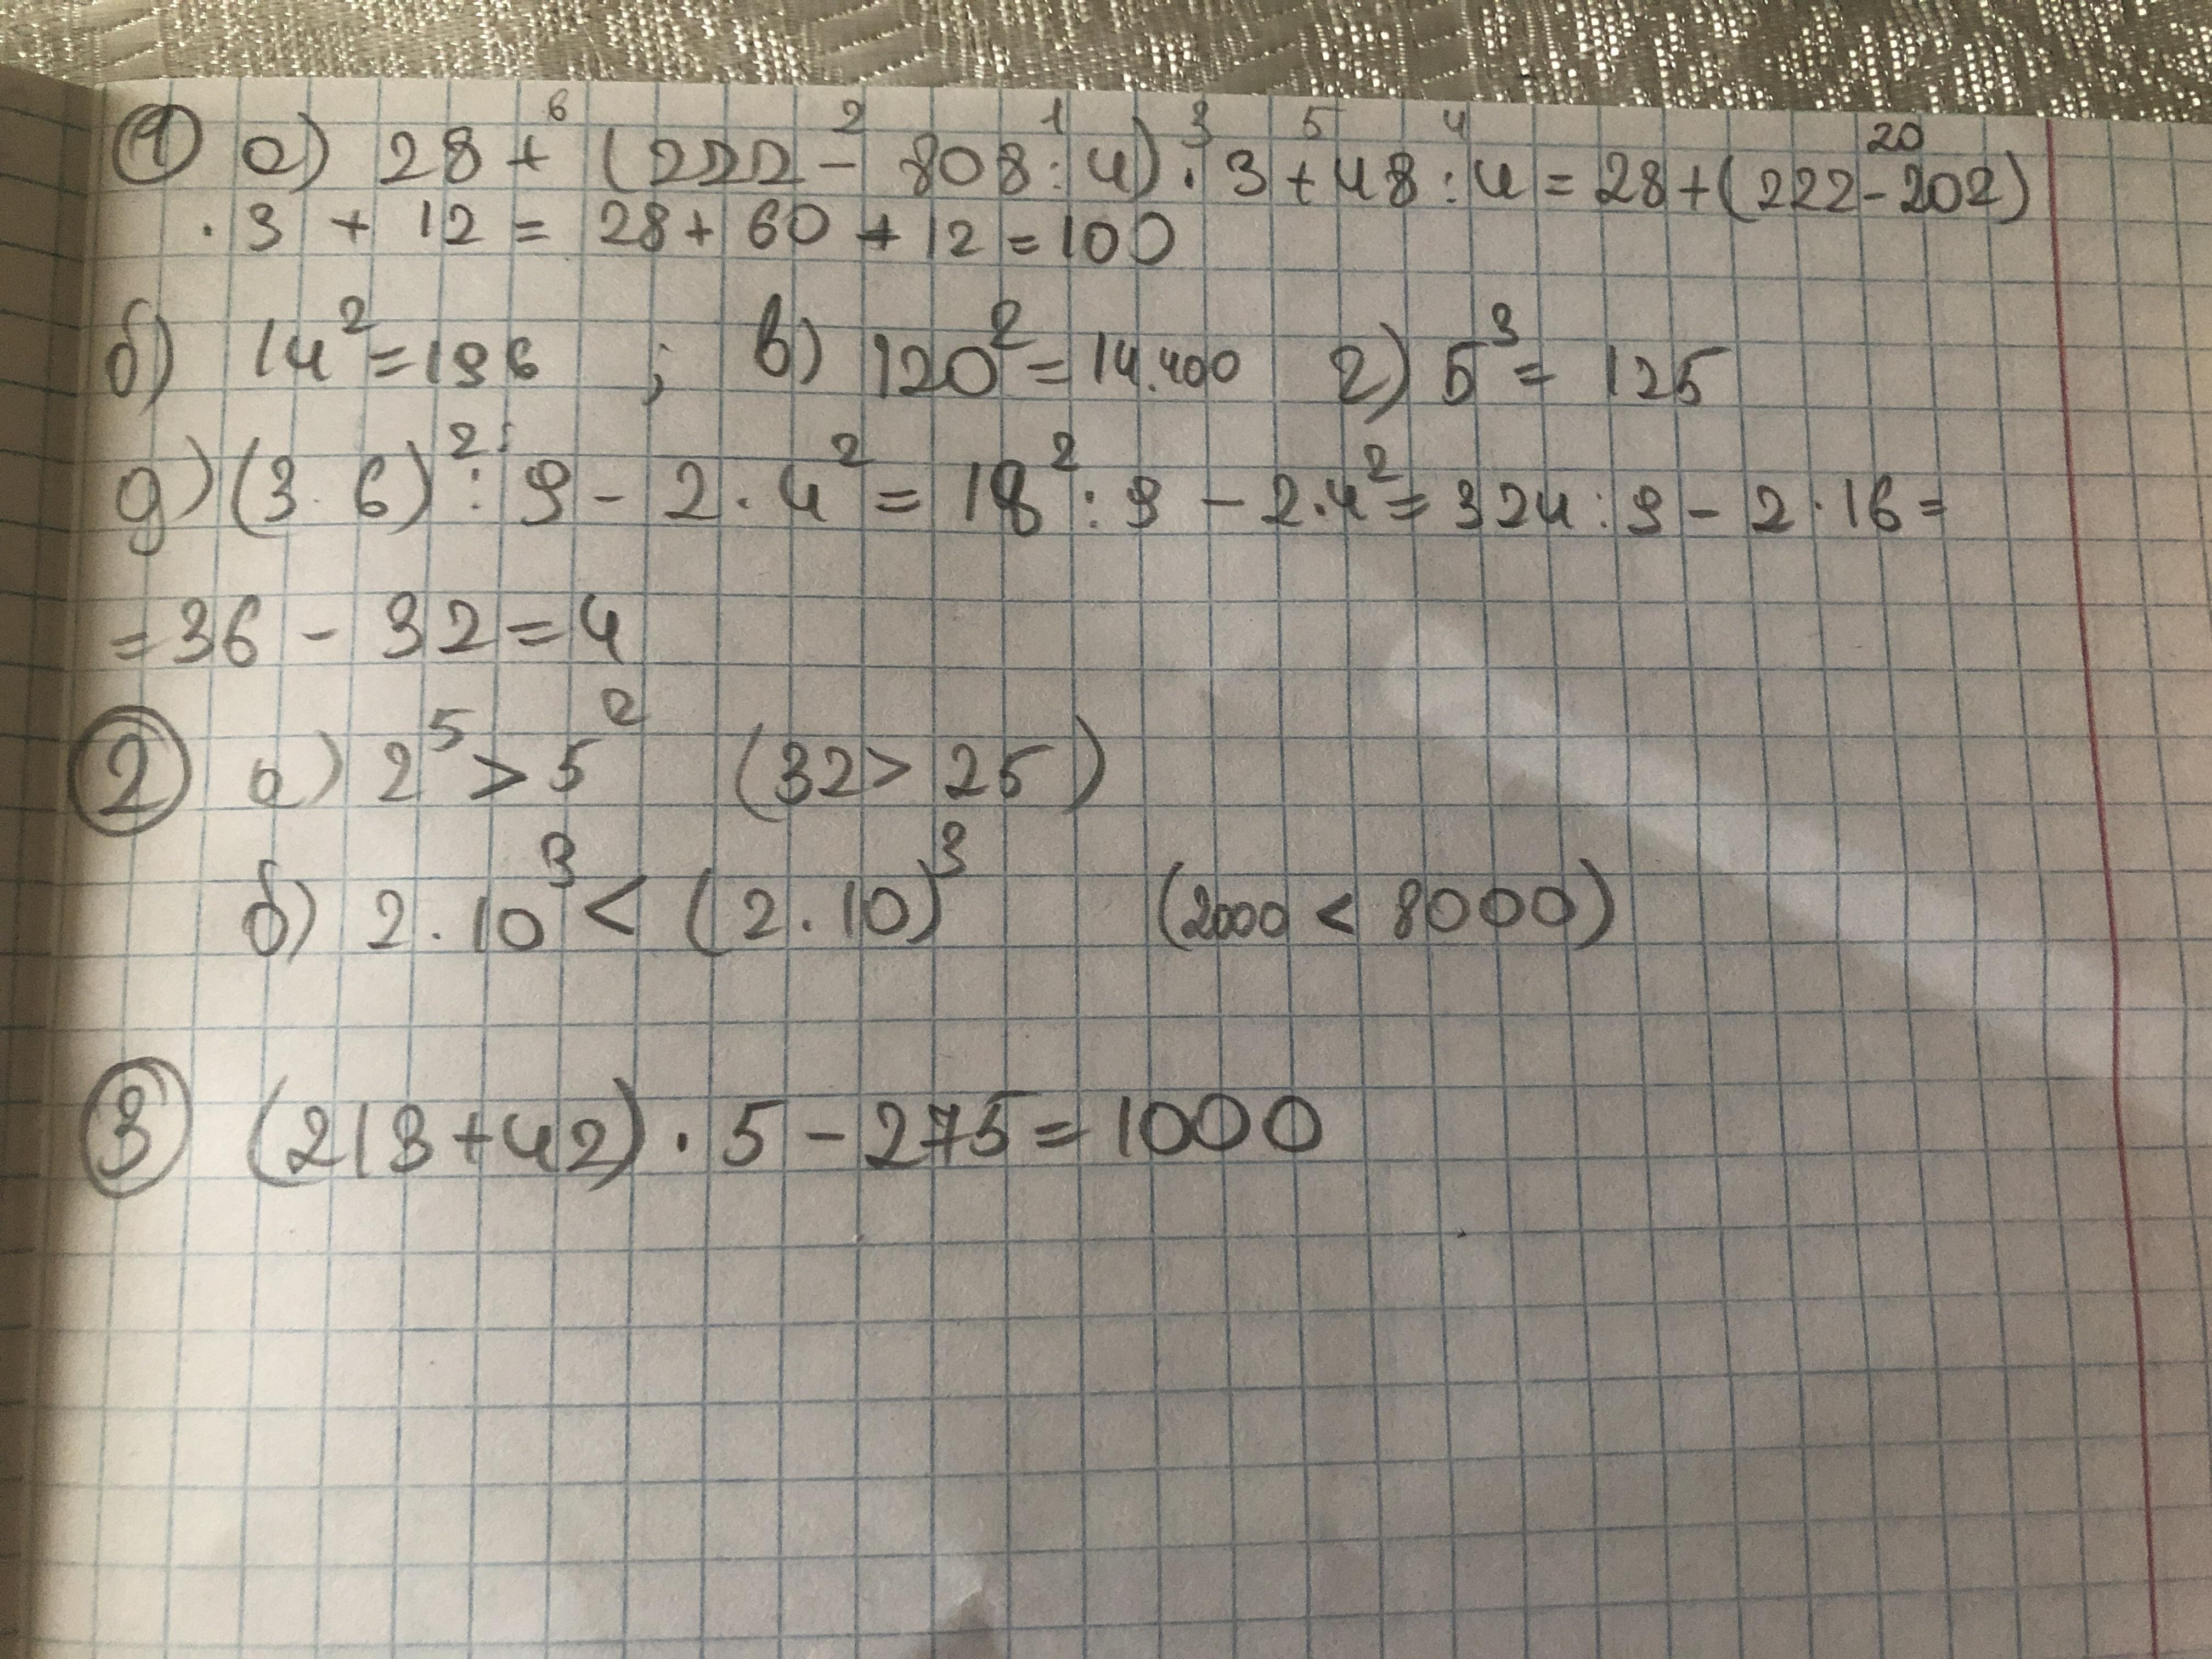 ① а) 28 +⁶ (222 -² 808 :¹ 4) ·³ 3 +⁵ 48 :⁴ 4 = 28 + (222 - 202)²⁰
· 3 + 12 = 28 + 60 + 12 = 100
б) 14² = 196 ; в) 120² = 14.400 г) 5³ = 125
д) (3 · 6)² : 9 - 2 · 4² = 18² : 9 - 2 · 4² = 324 : 9 - 2 · 16 =
= 36 - 32 = 4
② а) 2⁵ > 5² (32 > 25)
б) 2 · 10³ < (2 · 10)³ (2000 < 8000)
③ (213 + 42) · 5 - 275 = 1000